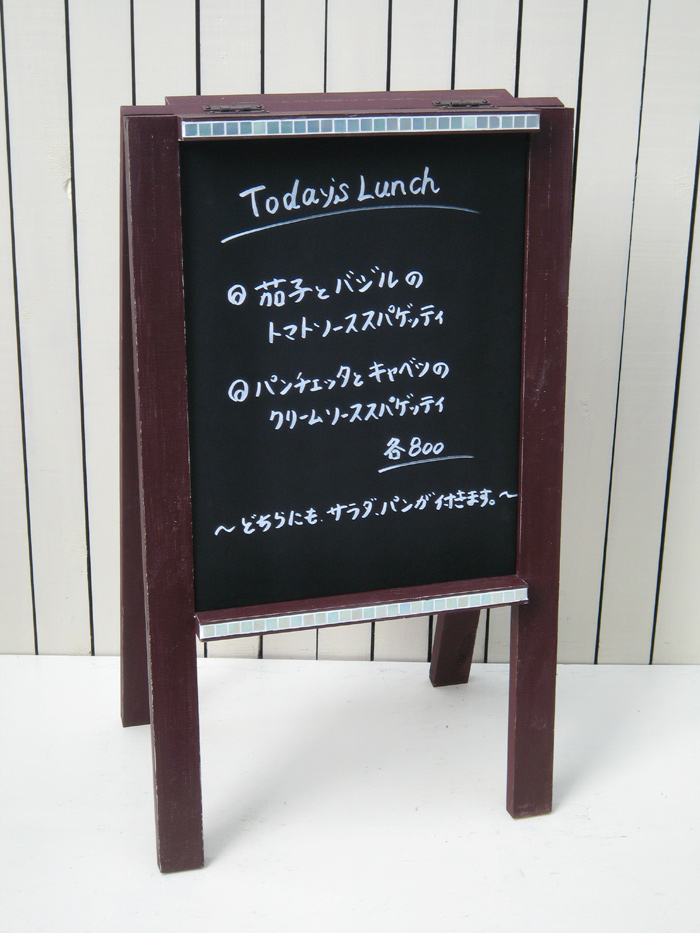 Today's Lunch
◎ 茄子とバジルの
トマトソーススパゲッティ
◎ パンチェッタとキャベツの
クリームソーススパゲッティ
各800
～どちらにも、サラダ、パンが付きます。～